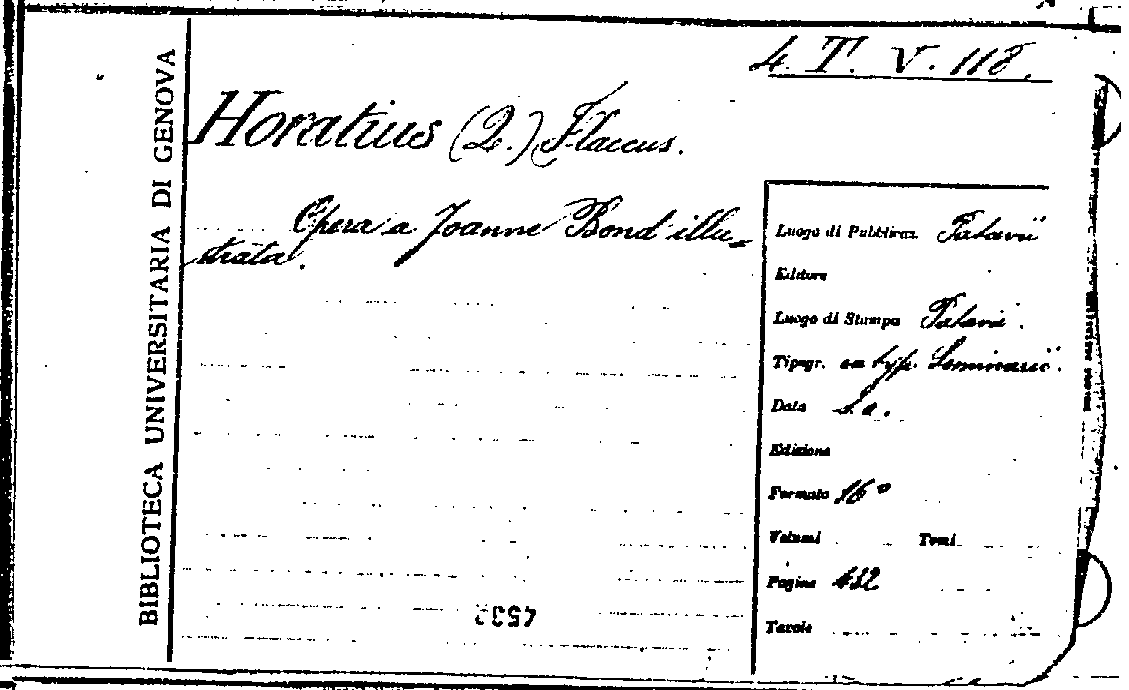 4. T. V. 118.
BIBLIOTECA UNIVERSITARIA DI GENOVA
Horatius (Q.) Flaccus.
Opera a Joanne Bond illu-
strata.
Luogo di Pubblicaz. Patavii
Editore
Luogo di Stampa Patavii.
Tipogr. ex typ. Seminarii.
Data s. a.
Edizione
Formato 16°
Volumi Tomi
Pagine 432
Tavole